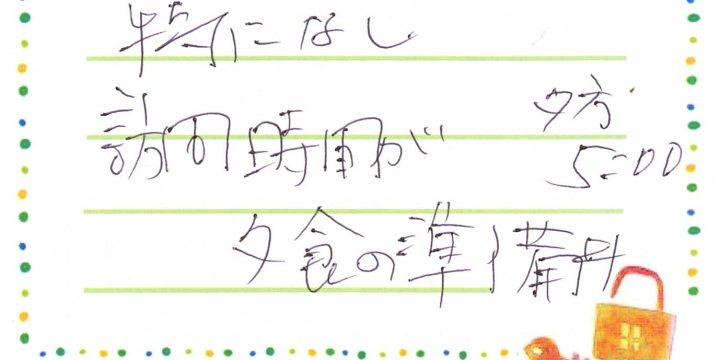 特になし
訪問時間が 夕方
5:00
夕食の準備時